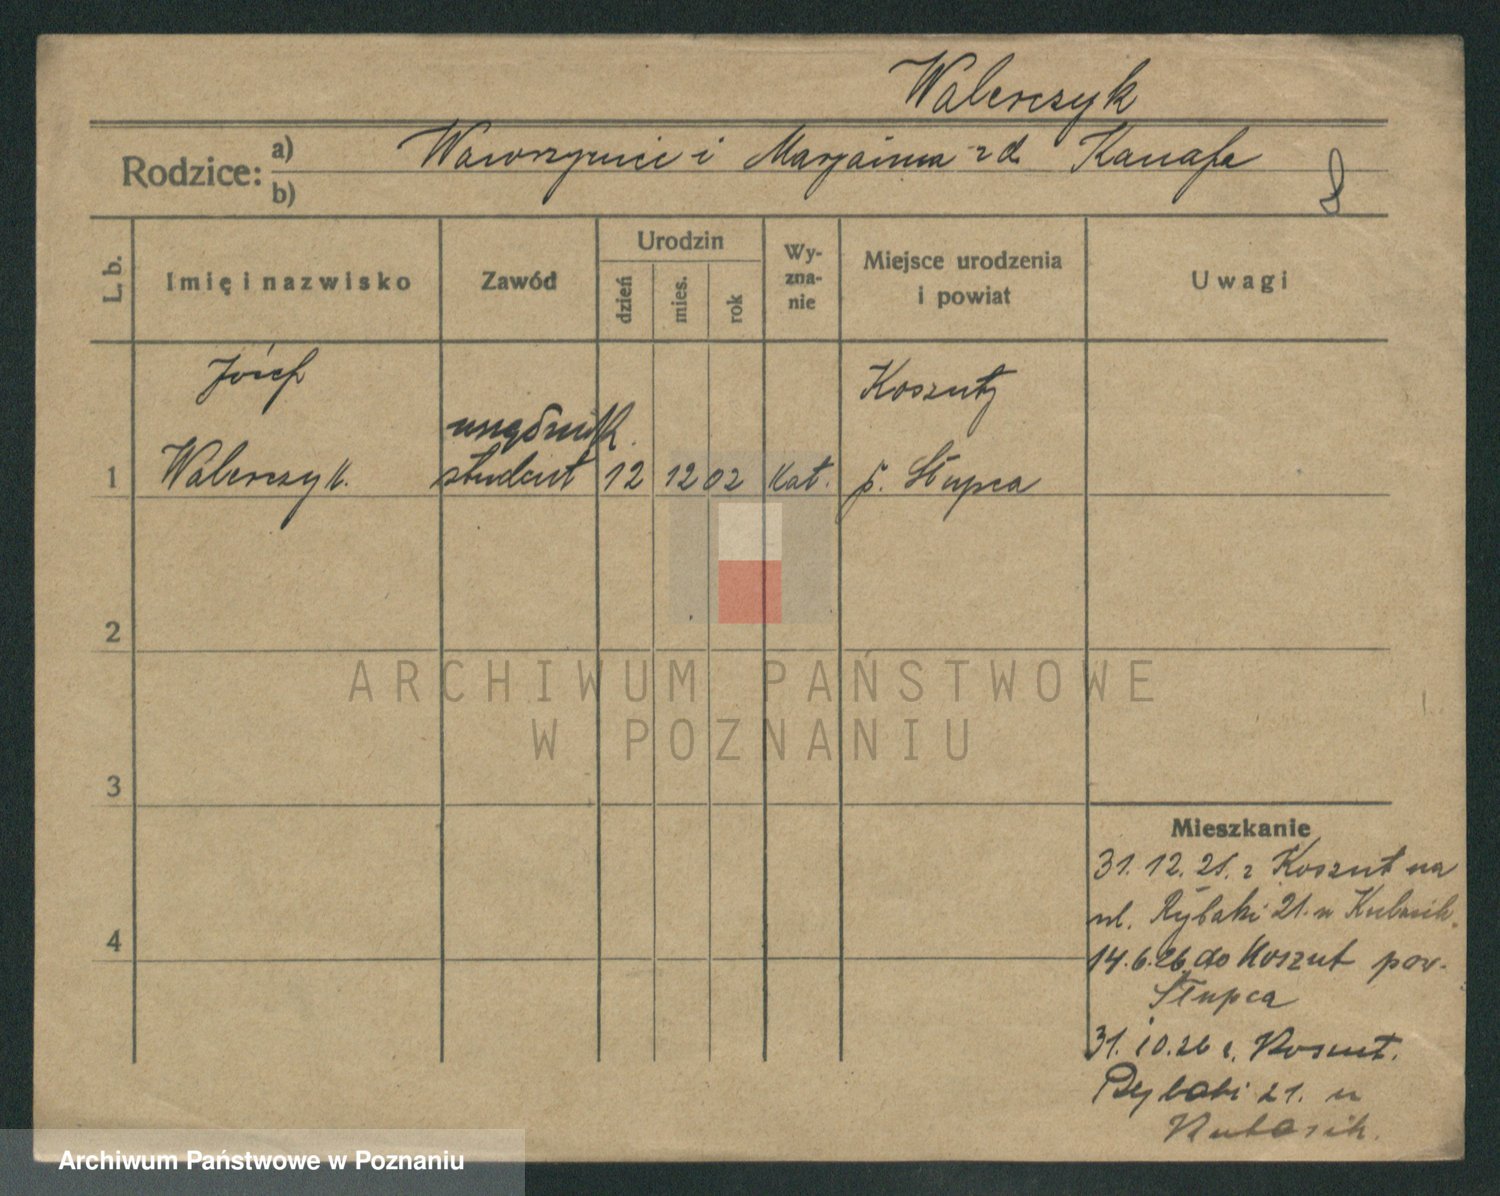 Walerczyk
Rodzice: a) Wawrzyniec i Maryanna z d. Kanafa
b)
8
L. b. Imię i nazwisko Zawód Urodzin dzień mies. rok Wyznanie Miejsce urodzenia i powiat Uwagi
Józef Koszuty
urzędnik
1 Walerczyk. student 12 12 02 kat. p. Słupca
2
ARCHIWUM PAŃSTWOWE
W POZNANIU
3
Mieszkanie
31. 12. 21. z Koszut na
ul. Rybaki 21. u Kubasik.
4
14.6.26 do Koszut pow.
Słupca
31. 10. 26 z. Koszut.
Rybaki 21. u
Kubasik.
Archiwum Państwowe w Poznaniu